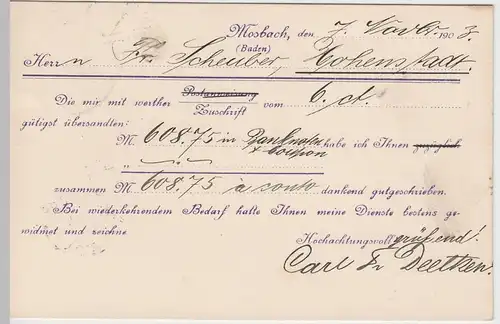 Mosbach, den 7. Novbr. 1903.
(Baden)
Herrn Fr. Scheuber, Hohenstadt.
Die mir mit werther Postanweisung
Zuschrift vom 6. ct.
gütigst übersandten:
M. 608.75 in Banknoten habe ich Ihnen zuzüglich
+ Coupon
„
zusammen M. 608.75 a conto dankend gutgeschrieben.
Bei wiederkehrendem Bedarf halte Ihnen meine Dienste bestens ge-
widmet und zeichne
Hochachtungsvoll grüßend!
Carl Fr Deetken.